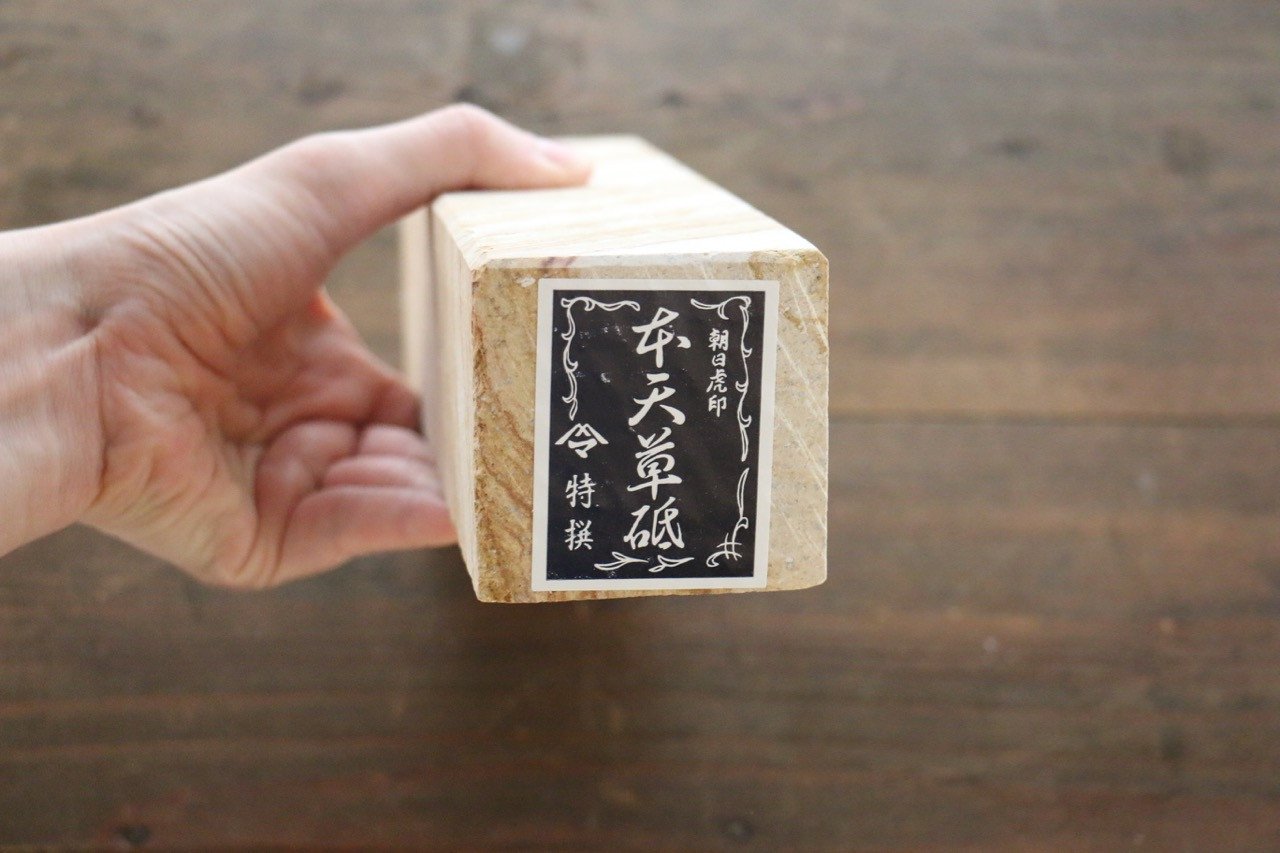 朝日虎印
本天草砥
特撰